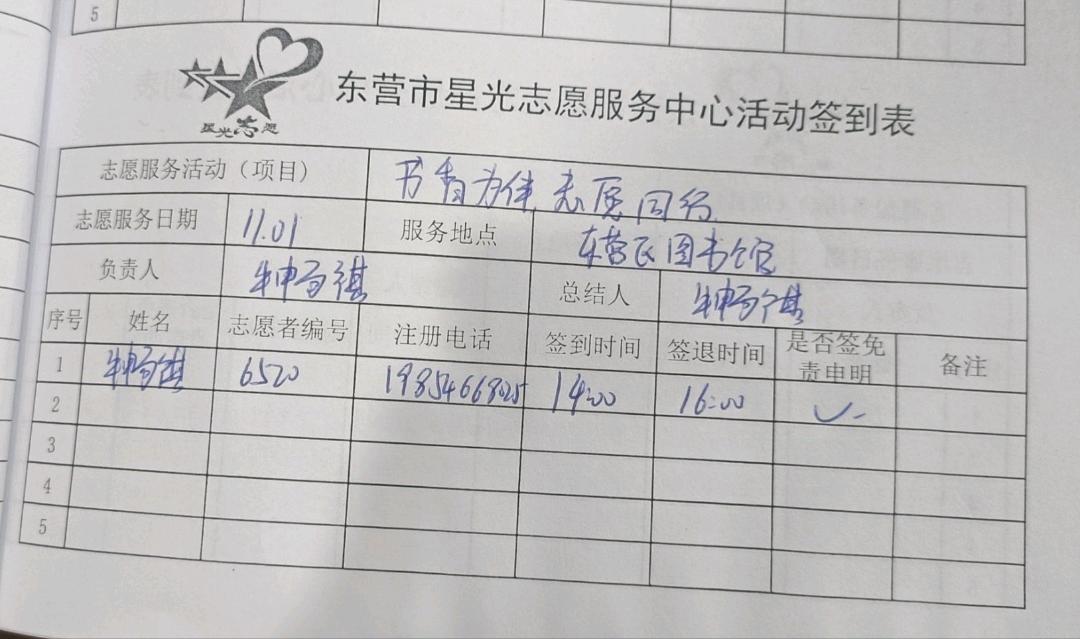 5
星光志愿
东营市星光志愿服务中心活动签到表
志愿服务活动（项目） 书香为伴 志愿同行
志愿服务日期 11.01 服务地点 东营区图书馆
负责人 总结人
序号 姓名 志愿者编号 注册电话 签到时间 签退时间 是否签免责申明 备注
1 6520 19854668025 14:00 16:00 ✓
2
3
4
5